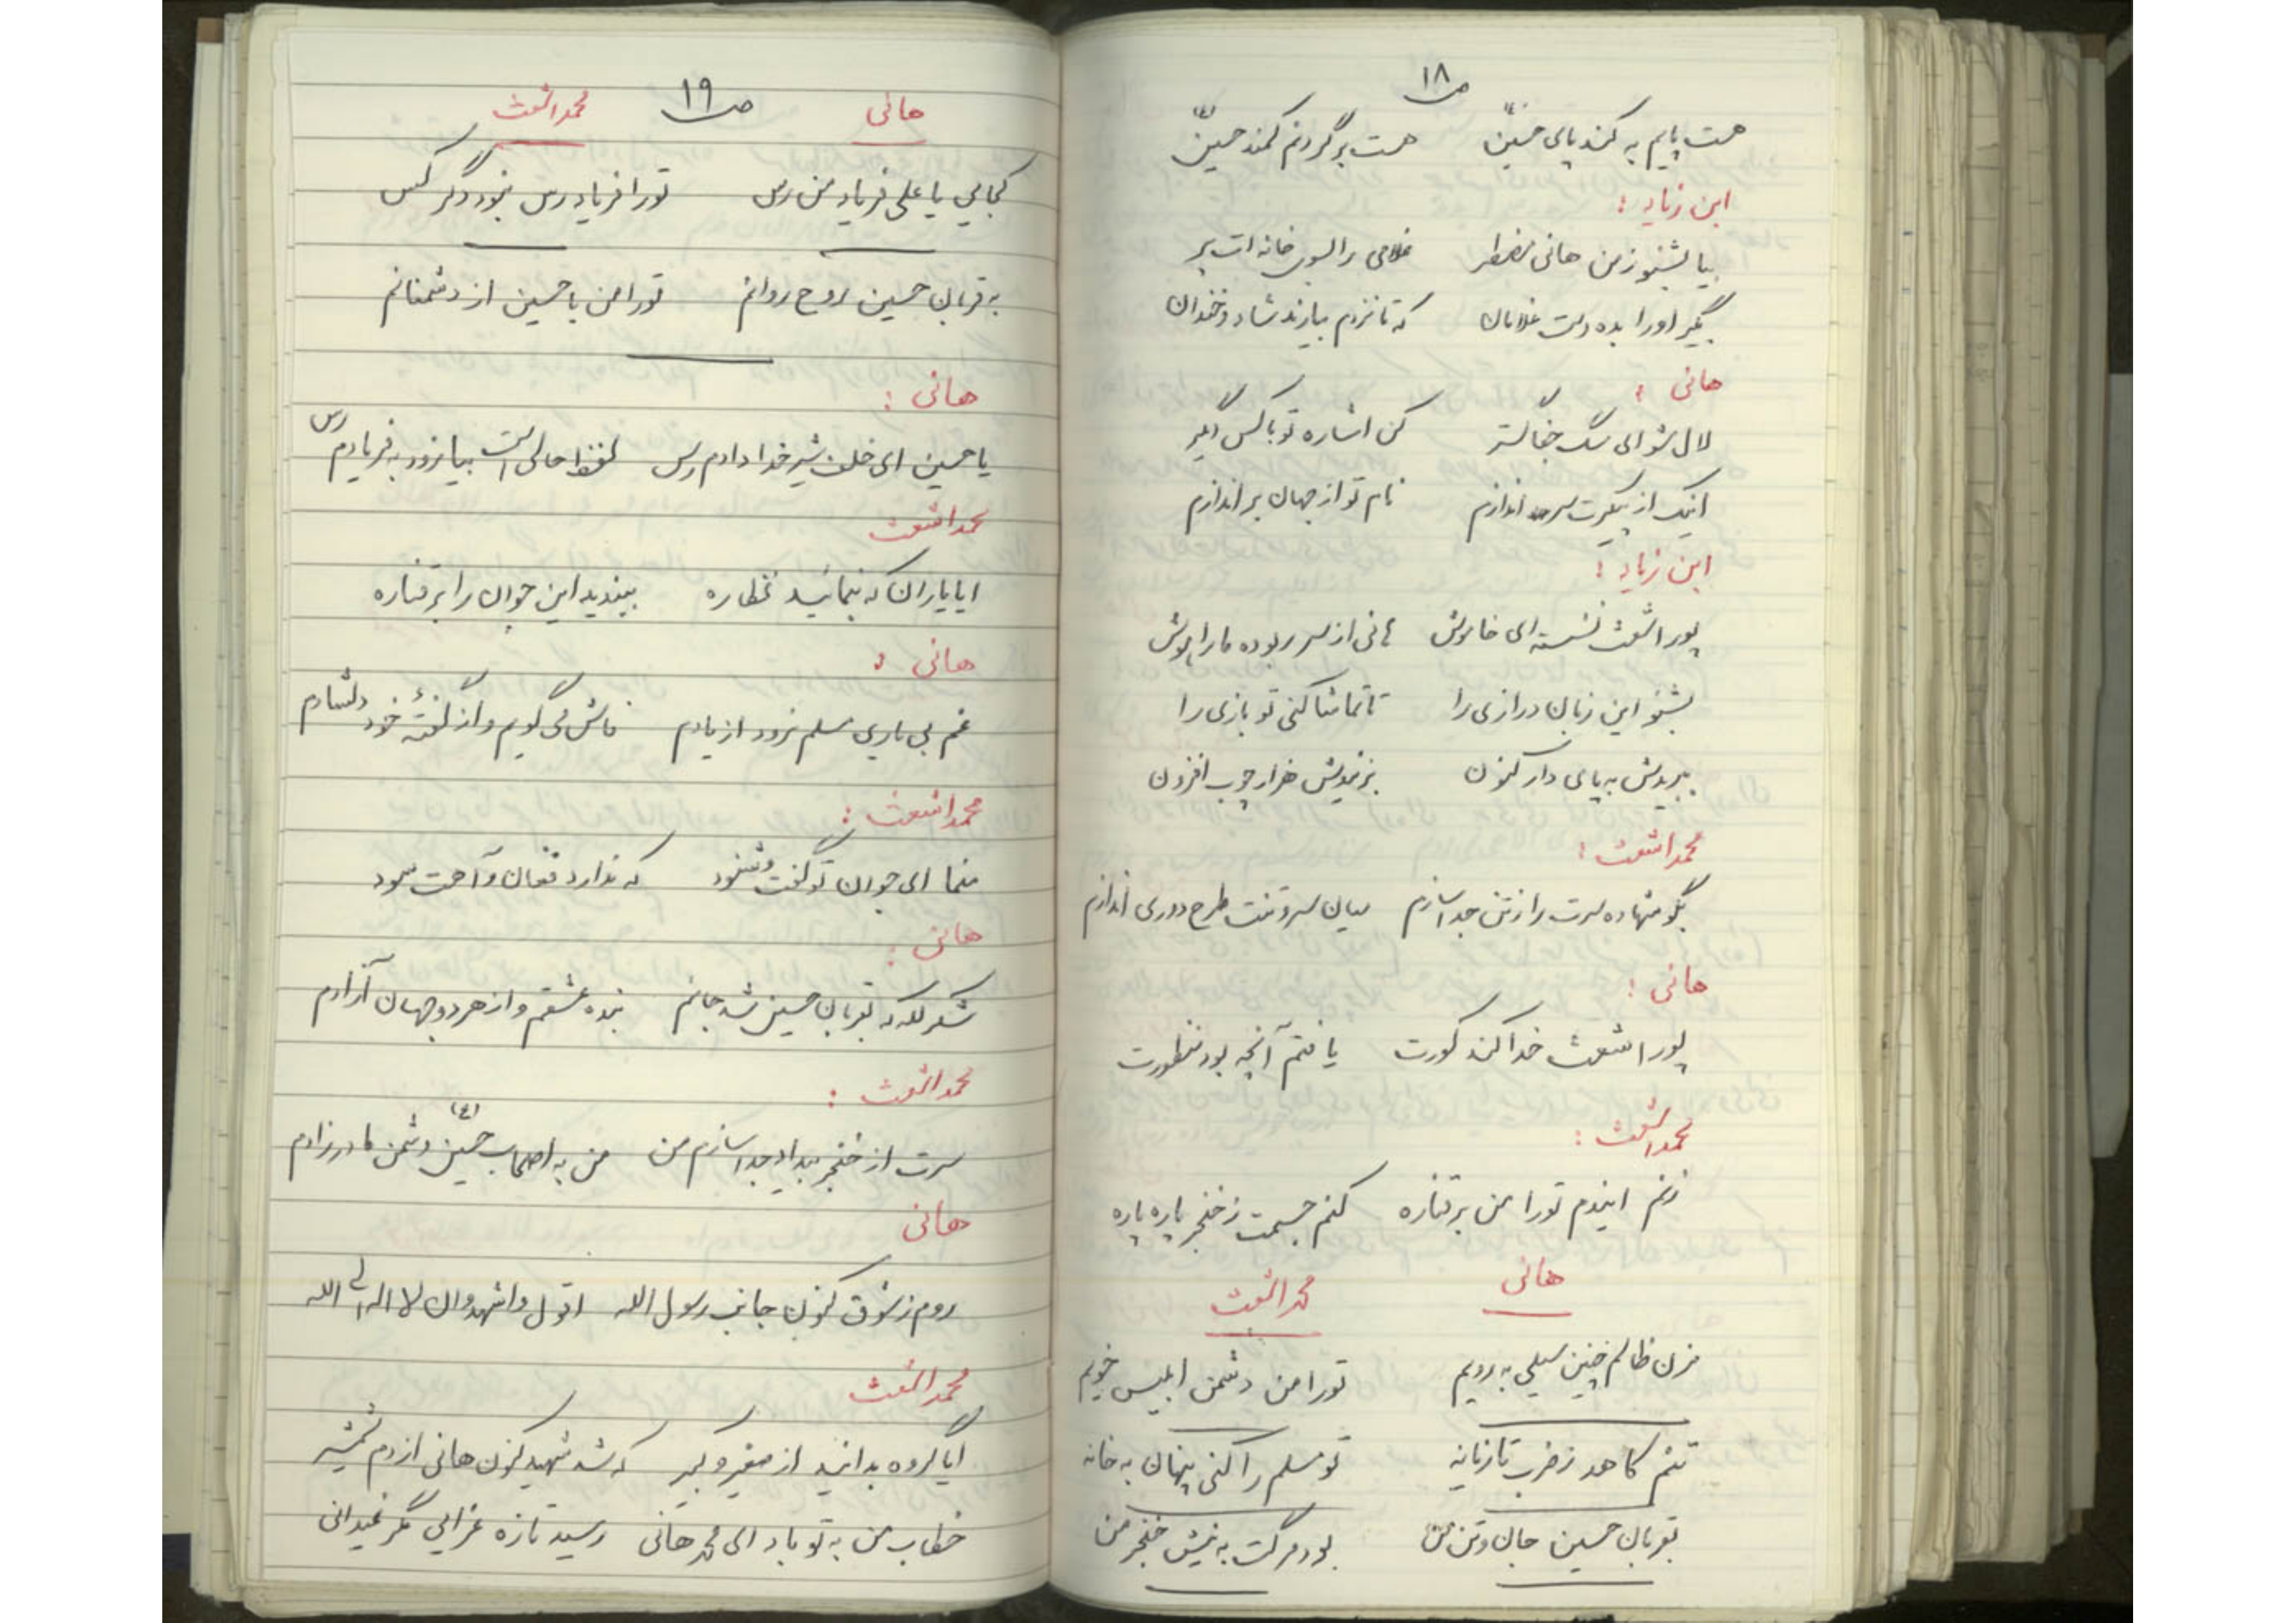 ص۱۸
هست پایم به کمند پای حسین(ع) هست بر گردنم کمند حسین(ع)
ابن زیاد :
بیا بشنو ز من هانی مضطر غلامی را بسوی خانه ات بر
بگیر اورا بده دست غلامان که تا نزدم بیارند شاد و خندان
هانی :
لال شو ای سگ جفا گستر کن اشاره تو با کس دیگر
اینک از پیکرت سر اندازم نام تو از جهان بر اندازم
ابن زیاد :
پور اشعث نشسته ای خاموش هانی از سر ربوده مارا هوش
بشنو این زبان درازی را تا تماشا کنی تو بازی را
ببریدش به پای دار کنون بزنیدش هزار چوب افزون
محمد اشعث :
بگو شهاده سرت را ز تن جدا سازم میان سر و تنت طرح دوری اندازم
هانی :
پور اشعث خدا کند کورت یافتم آنچه بود منظورت
محمد اشعث :
زنم ایندم تورا من بر قناره کنم جسمت ز خنجر پاره پاره
هانی محمد اشعث
مزن ظالم چنین سیلی به رویم تورا من دشمن ابلیس خویم
تنم کاهد ز ضرب تازیانه تو مسلم را کنی پنهان به خانه
بقربان حسین جان و تن من بود مرگت به نیش خنجر من
ص۱۹
هانی محمد اشعث
کجایی یا علی فریاد من رس تورا فریاد رس نبود دگر کس
به قربان حسین روح روانم تورا من با حسین از دشمنانم
هانی :
یا حسین ای خلف شیر خدا دادم رس لحظه حالی است بیا زود به فریادم رس
محمد اشعث
ایا یاران که بنمائید نظاره ببندید این جوان را بر قناره
هانی :
غم بی یاری مسلم نرود از یادم فاش می گویم و از گفتهٔ خود دلشادم
محمد اشعث :
منما ای جوان تو گفت و شنود که ندارد فغان و آهت سود
هانی :
شکر لله که بقربان حسین شد جانم بنده عشقم و از هر دو جهان آزادم
محمد اشعث :
سرت از خنجر بیداد جدا سازم من من به اصحاب حسین(ع) دشمن مادر زادم
هانی
روم ز شوق کنون جانب رسول الله اقول و اشهد وان لا اله الی الله
محمد اشعث
ایا گروه بدانید از صغیر و کبیر که شد شهید کنون هانی از دم شمشیر
خطاب من به تو باد ای محمد هانی رسید تازه عزایی مگر نمیدانی